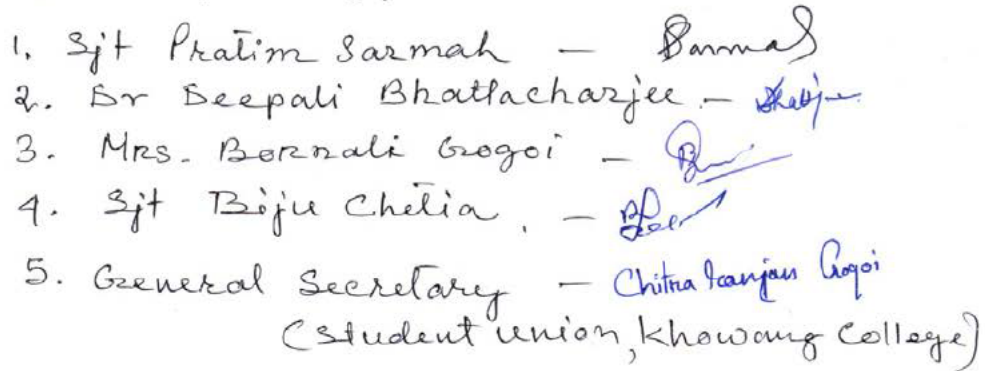 1. Sjt Pratim Sarmah - Sarmah
2. Dr Deepali Bhattacharjee -
3. Mrs. Bornali Gogoi -
4. Sjt Biju Chetia. -
5. General Secretary - Chitra Ranjan Gogoi
(Student Union, Khowang College)